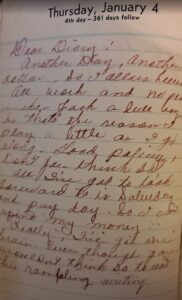 Thursday, January 4
4th day - 361 days follow
Dear Diary:
Another Day, Another
dollar, So I allus
All work and no
Jack a dull
is that's the reason I
play a little as I go
along. Good policy,
don't you think so?
all I've got to look
forward to is Saturday
and pay day. So I can
my money.
Really I've got one
brain Even though you
wouldn't think so to read
this rambling